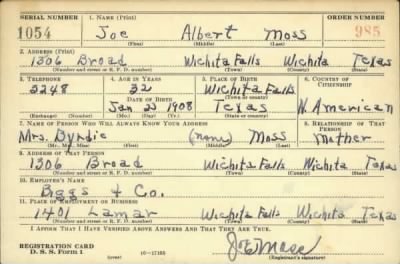 SERIAL NUMBER 1. NAME (Print) ORDER NUMBER
1054 Joe Albert Moss 985
(First) (Middle) (Last)
2. ADDRESS (Print)
1306 Broad Wichita Falls Wichita Texas
(Number and street or R. F. D. number) (Town) (County) (State)
3. TELEPHONE 4. AGE IN YEARS 5. PLACE OF BIRTH 6. COUNTRY OF CITIZENSHIP
2248 32 Wichita Falls
DATE OF BIRTH (Town or county)
Jan 23 1908 Texas W. American
(Exchange) (Number) (Mo.) (Day) (Yr.) (State or country)
7. NAME OF PERSON WHO WILL ALWAYS KNOW YOUR ADDRESS 8. RELATIONSHIP OF THAT PERSON
Mrs. Byrdie (none) Moss Mother
(Mr., Mrs., Miss) (First) (Middle) (Last)
9. ADDRESS OF THAT PERSON
1306 Broad Wichita Falls Wichita Texas
(Number and street or R. F. D. number) (Town) (County) (State)
10. EMPLOYER'S NAME
Biggs & Co.
11. PLACE OF EMPLOYMENT OR BUSINESS
1401 Lamar Wichita Falls Wichita Texas
(Number and street or R. F. D. number) (Town) (County) (State)
I AFFIRM THAT I HAVE VERIFIED ABOVE ANSWERS AND THAT THEY ARE TRUE.
REGISTRATION CARD
D. S. S. Form 1 Joe Moss
(Registrant's signature)